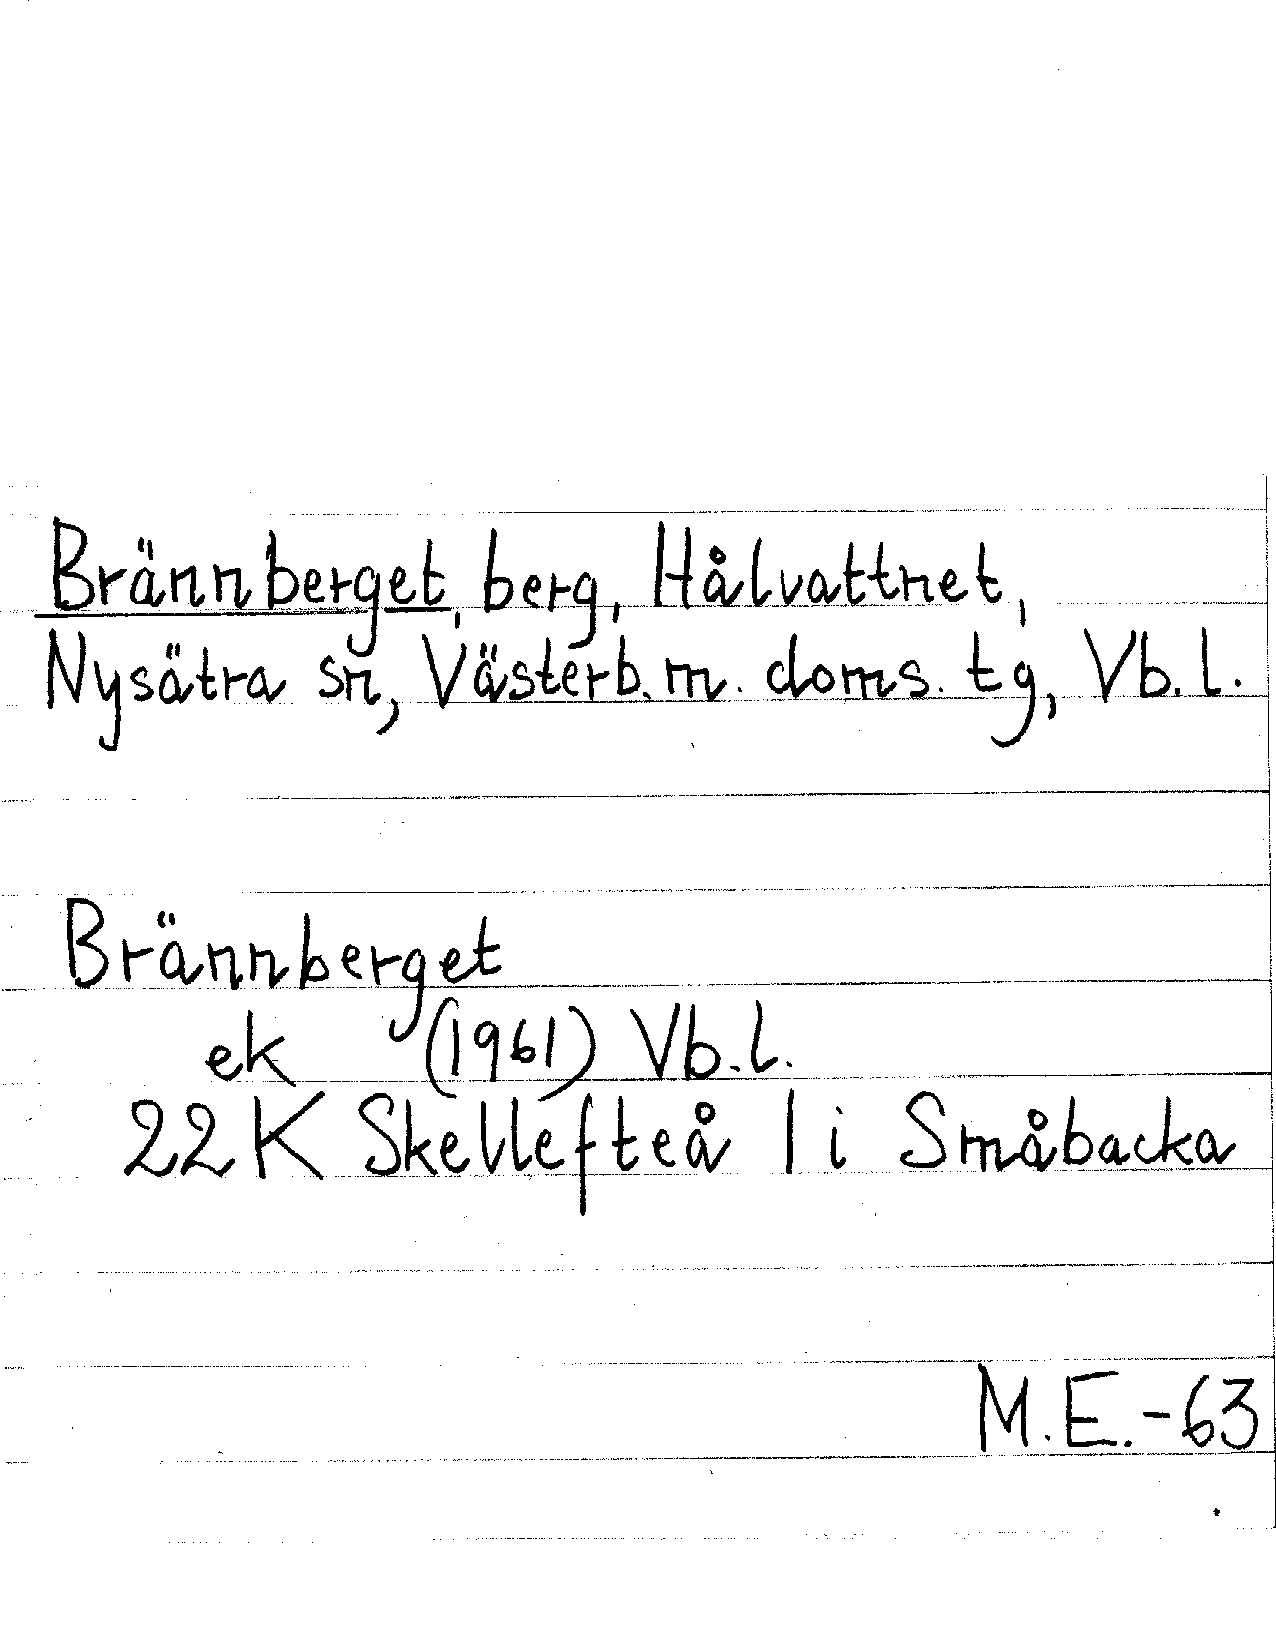 Brännberget, berg, Hålvattnet,
Nysätra sn, Västerb. m. doms. tg, Vb. l.
Brännberget
ek (1961) Vb. l.
22K Skellefteå 1 i Småbacka
M.E.-63